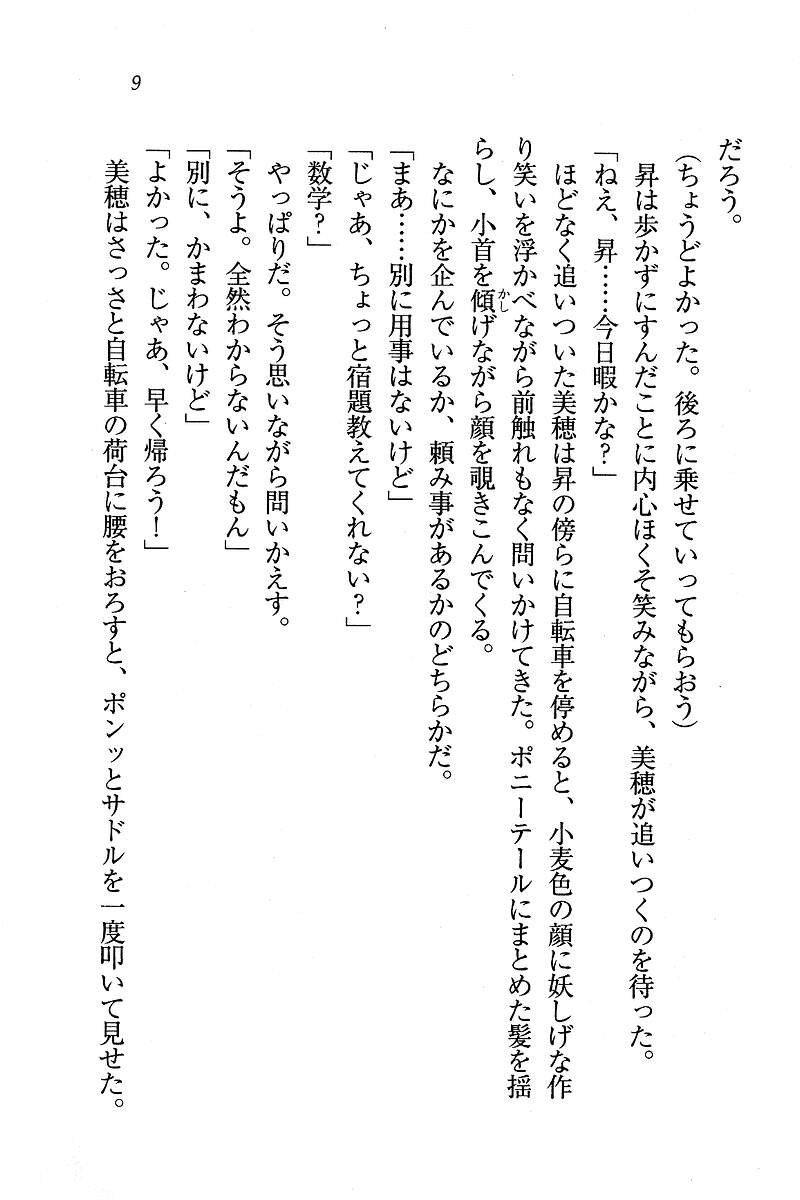 9
だろう。
(ちょうどよかった。後ろに乗せていってもらおう)
昇は歩かずにすんだことに内心ほくそ笑みながら、美穂が追いつくのを待った。
「ねえ、昇……今日暇かな?」
ほどなく追いついた美穂は昇の傍らに自転車を停めると、小麦色の顔に妖しげな作
り笑いを浮かべながら前触れもなく問いかけてきた。ポニーテールにまとめた髪を揺
らし、小首を傾かしげながら顔を覗きこんでくる。
なにかを企んでいるか、頼み事があるかのどちらかだ。
「まあ……別に用事はないけど」
「じゃあ、ちょっと宿題教えてくれない?」
「数学?」
やっぱりだ。そう思いながら問いかえす。
「そうよ。全然わからないんだもん」
「別に、かまわないけど」
「よかった。じゃあ、早く帰ろう!」
美穂はさっさと自転車の荷台に腰をおろすと、ポンッとサドルを一度叩いて見せた。